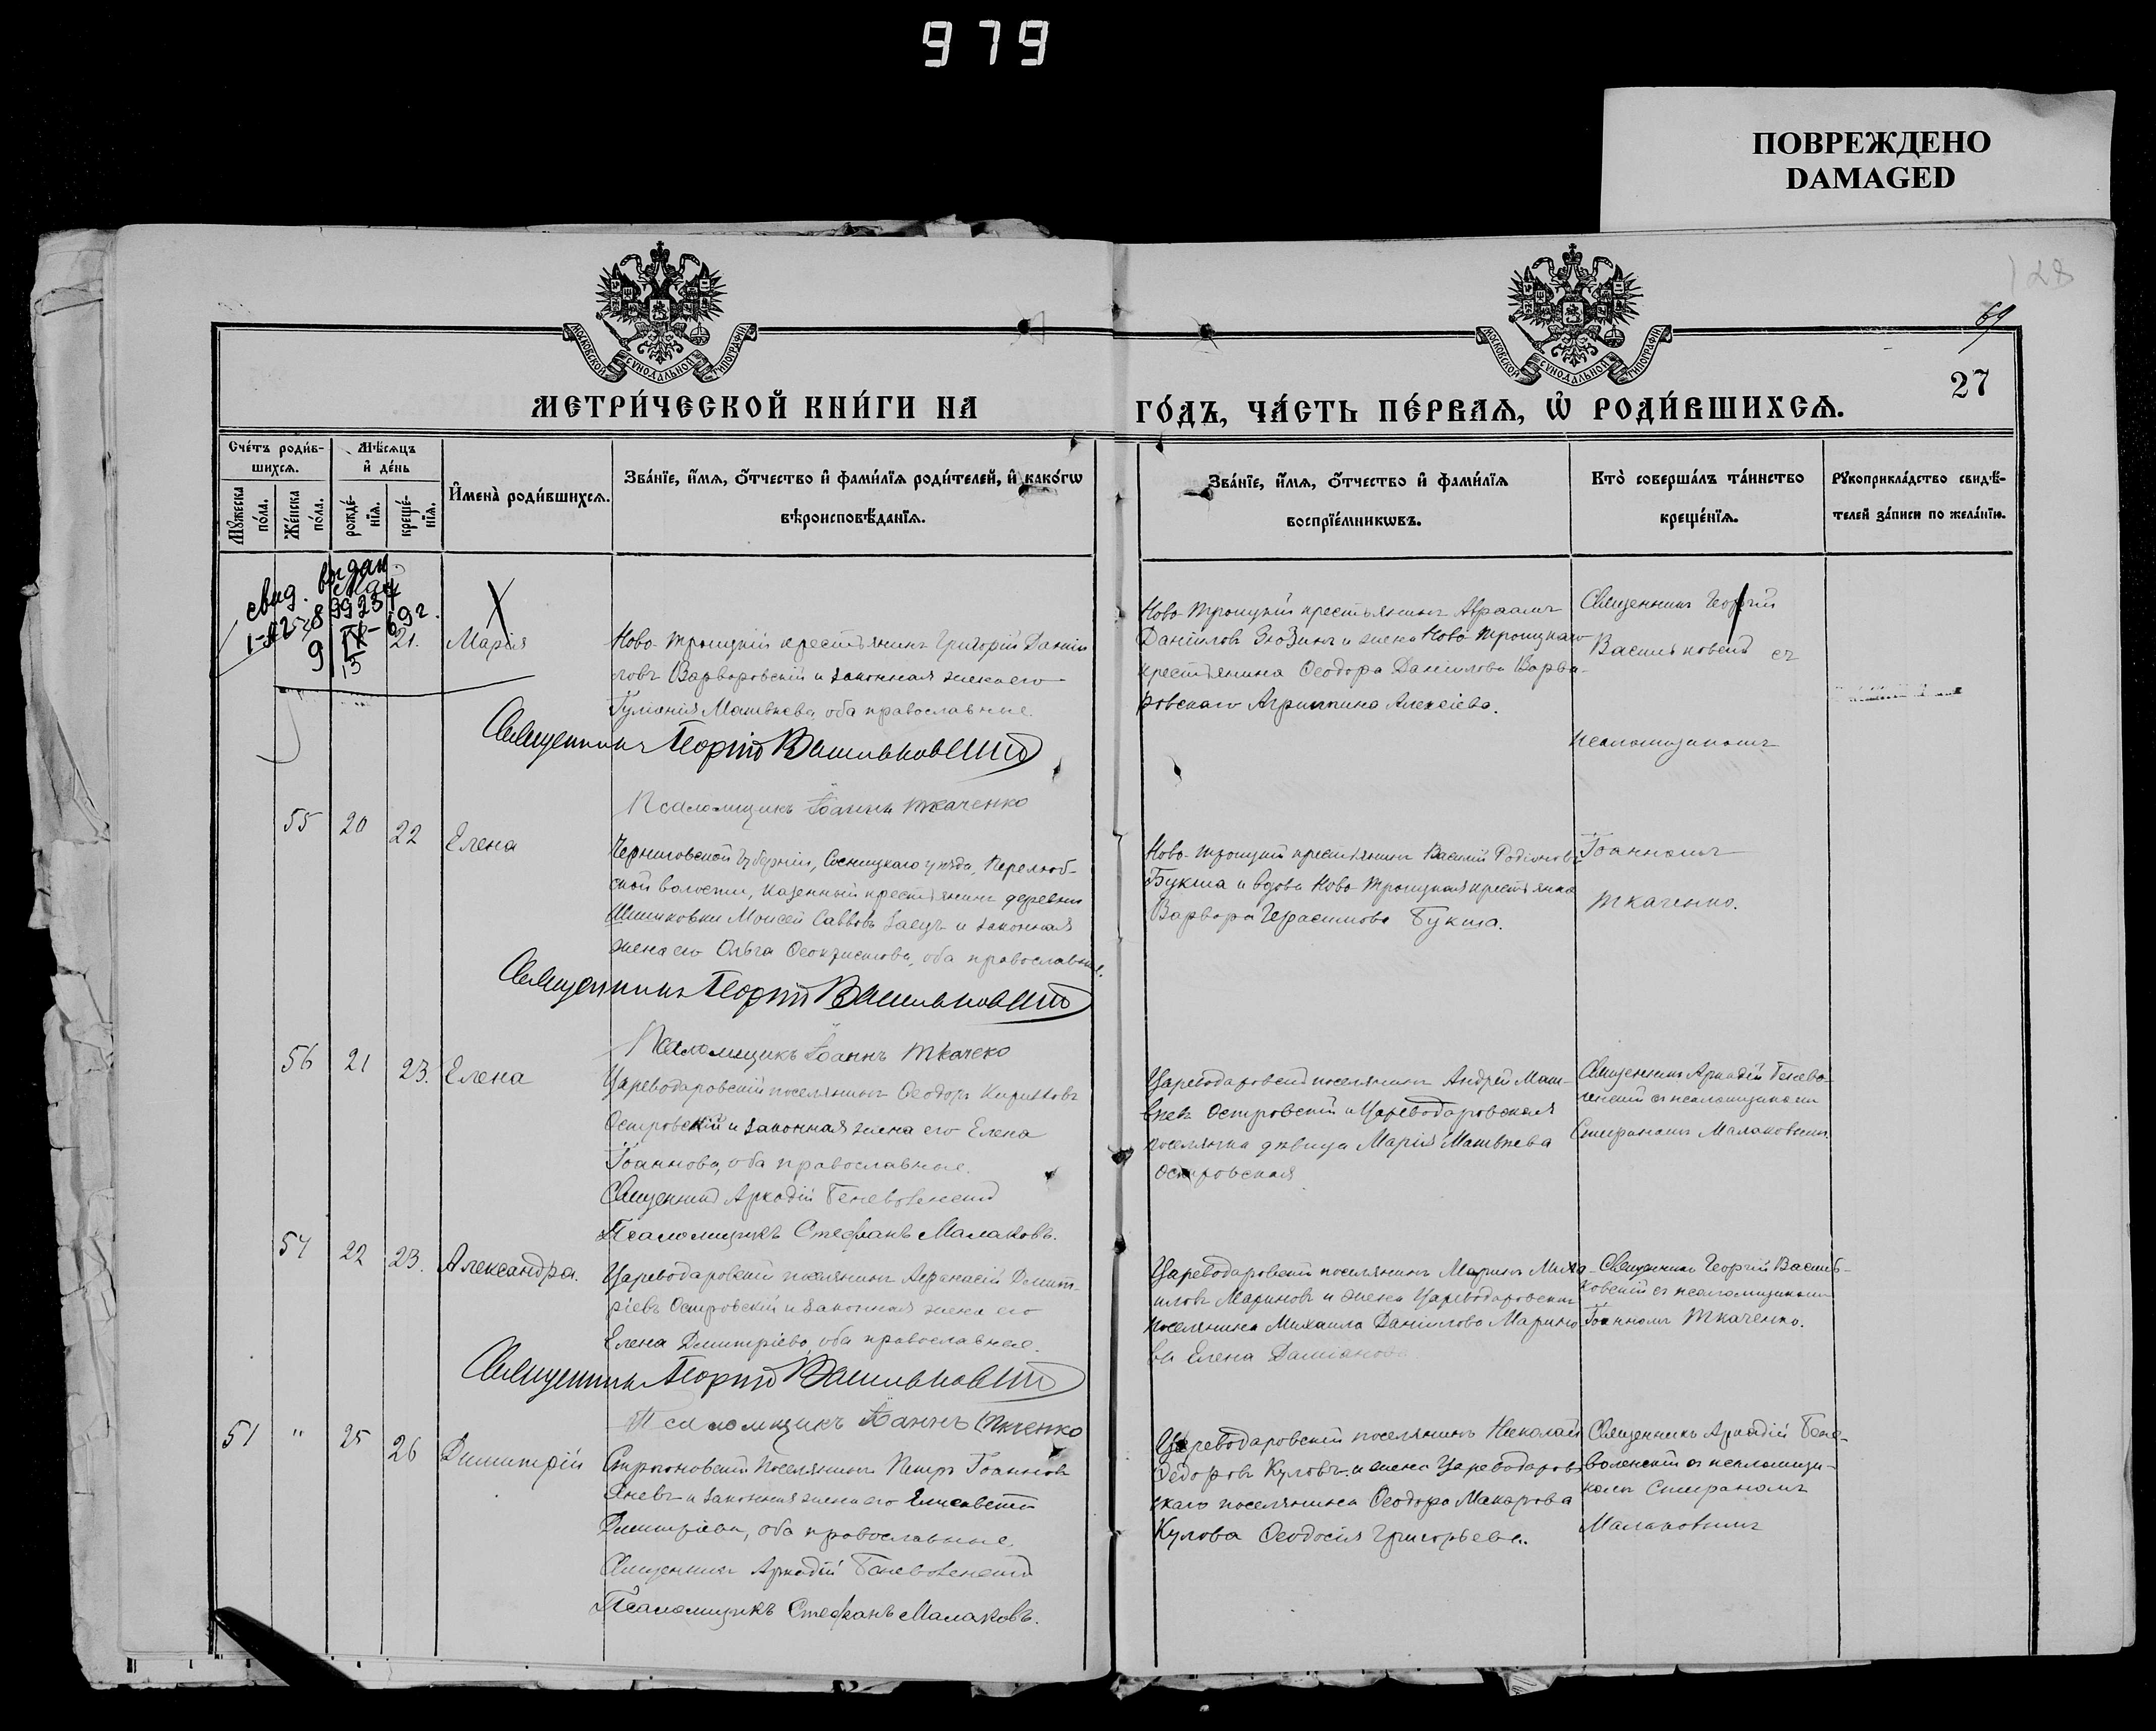 979
ПОВРЕЖДЕНО
DAMAGED
128
69
27
МОСКОВСКОЙ СУНОДАЛЬНОЙ ТИПОГРАФІИ
МОСКОВСКОЙ СУНОДАЛЬНОЙ ТИПОГРАФІИ
МЕТРИ́ЧЕСКОЙ КНИ́ГИ НА
ГО́ДЪ, ЧА́СТЬ ПЕ́РВАѦ, Ѡ҆ РОДИ́ВШИХСѦ.
Сче́тъ роди́в-
шихсѧ.
Мѣ́сѧцъ
и҆ де́нь
Мꙋ́жеска
по́ла.
Же́нска
по́ла.
рожде́-
нїѧ.
креще́-
нїѧ.
И҆мена̀ роди́вшихсѧ.
Зва́нїе, и҆́мѧ, ѻ҆́тчество и҆ фами́лїѧ роди́телей, и҆ како́гѡ
вѣроисповѣ́данїѧ.
Зва́нїе, и҆́мѧ, ѻ҆́тчество и҆ фами́лїѧ
воспрїе́мникѡвъ.
Кто̀ соверша́лъ та́инство
креще́нїѧ.
Рꙋкоприкла́дство свидѣ́-
телей за́писи по жела́нїю.
свид. выдан
21. Марія
Ново-Троицкій крестьянинъ Григорій Даніи
ловъ Варваровскій и законная жена его
Матвѣева, оба православные.
Священникъ Георгій Васильковскій
Псаломщикъ Іоаннъ Ткаченко
Ново-Троицкій крестьянинъ Авраамъ
Даніиловъ и жена Ново-Троицкаго
крестьянина Ѳеодора Даніилова Варва-
ровскаго Агриппина Алексіева.
Священникъ Георгій
Васильковскій съ
псаломщикомъ
55 20 22 Елена
Черниговской губерніи, Сосницкаго уѣзда, Перелюб-
ской волости, казенный крестьянинъ деревни
Моисей Саввовъ Заецъ и законная
жена его Ольга Ѳеоктистова, оба православные.
Священникъ Георгій Васильковскій
Псаломщикъ Іоаннъ Ткачеко
Ново-Троицкій крестьянинъ Василій Родіоновъ
Букша и вдова Ново-Троицкая крестьянка
Варвара Герасимова Букша.
Іоанномъ
Ткаченко.
56 21 23. Елена
Цареводаровскій поселянинъ Ѳеодоръ Кирилловъ
Островскій и законная жена его Елена
Іоаннова, оба православные.
Священникъ Аркадій Беневоленскій
Псаломщикъ Стефанъ Малаховъ.
Цареводаровскій поселянинъ Андрей Мат-
вѣевъ Островскій и Цареводаровская
поселянка дѣвица Марія Матвѣева
Островская
Священникъ Аркадій Бенево-
ленскій съ псаломщикомъ
Стефаномъ Малаховымъ.
57 22 23. Александра.
Цареводаровскій поселянинъ Аѳанасій Димит-
ріевъ Островскій и законная жена его
Елена Димитріева, оба православные.
Священникъ Георгій Васильковскій
Псаломщикъ Іоаннъ Ткченко
Цареводаровскій поселянинъ Маринъ Миха-
иловъ Мариновъ и жена Цареводаровскаго
поселянина Михаила Даніилова Марино
ва Елена Даміанова
Священникъ Георгій Василь-
ковскій съ псаломщикомъ
Іоанномъ Ткаченко.
51 " 25 26 Димитрій
Строгоновскій поселянинъ Петръ Іоанновъ
Яневъ и законная жена его Елисавета
Димитріева, оба православные.
Священникъ Аркадій Беневоленскій
Псаломщикъ Стефанъ Малаховъ.
Цареводаровскій поселянинъ Николай
Ѳедоровъ Куловъ и жена Цареводаров-
скаго поселянина Ѳеодора Макарова
Кулова Ѳеодосія Григорьева.
Священникъ Аркадій Бене-
воленскій съ псаломщи-
комъ Стефаномъ
Малаховымъ